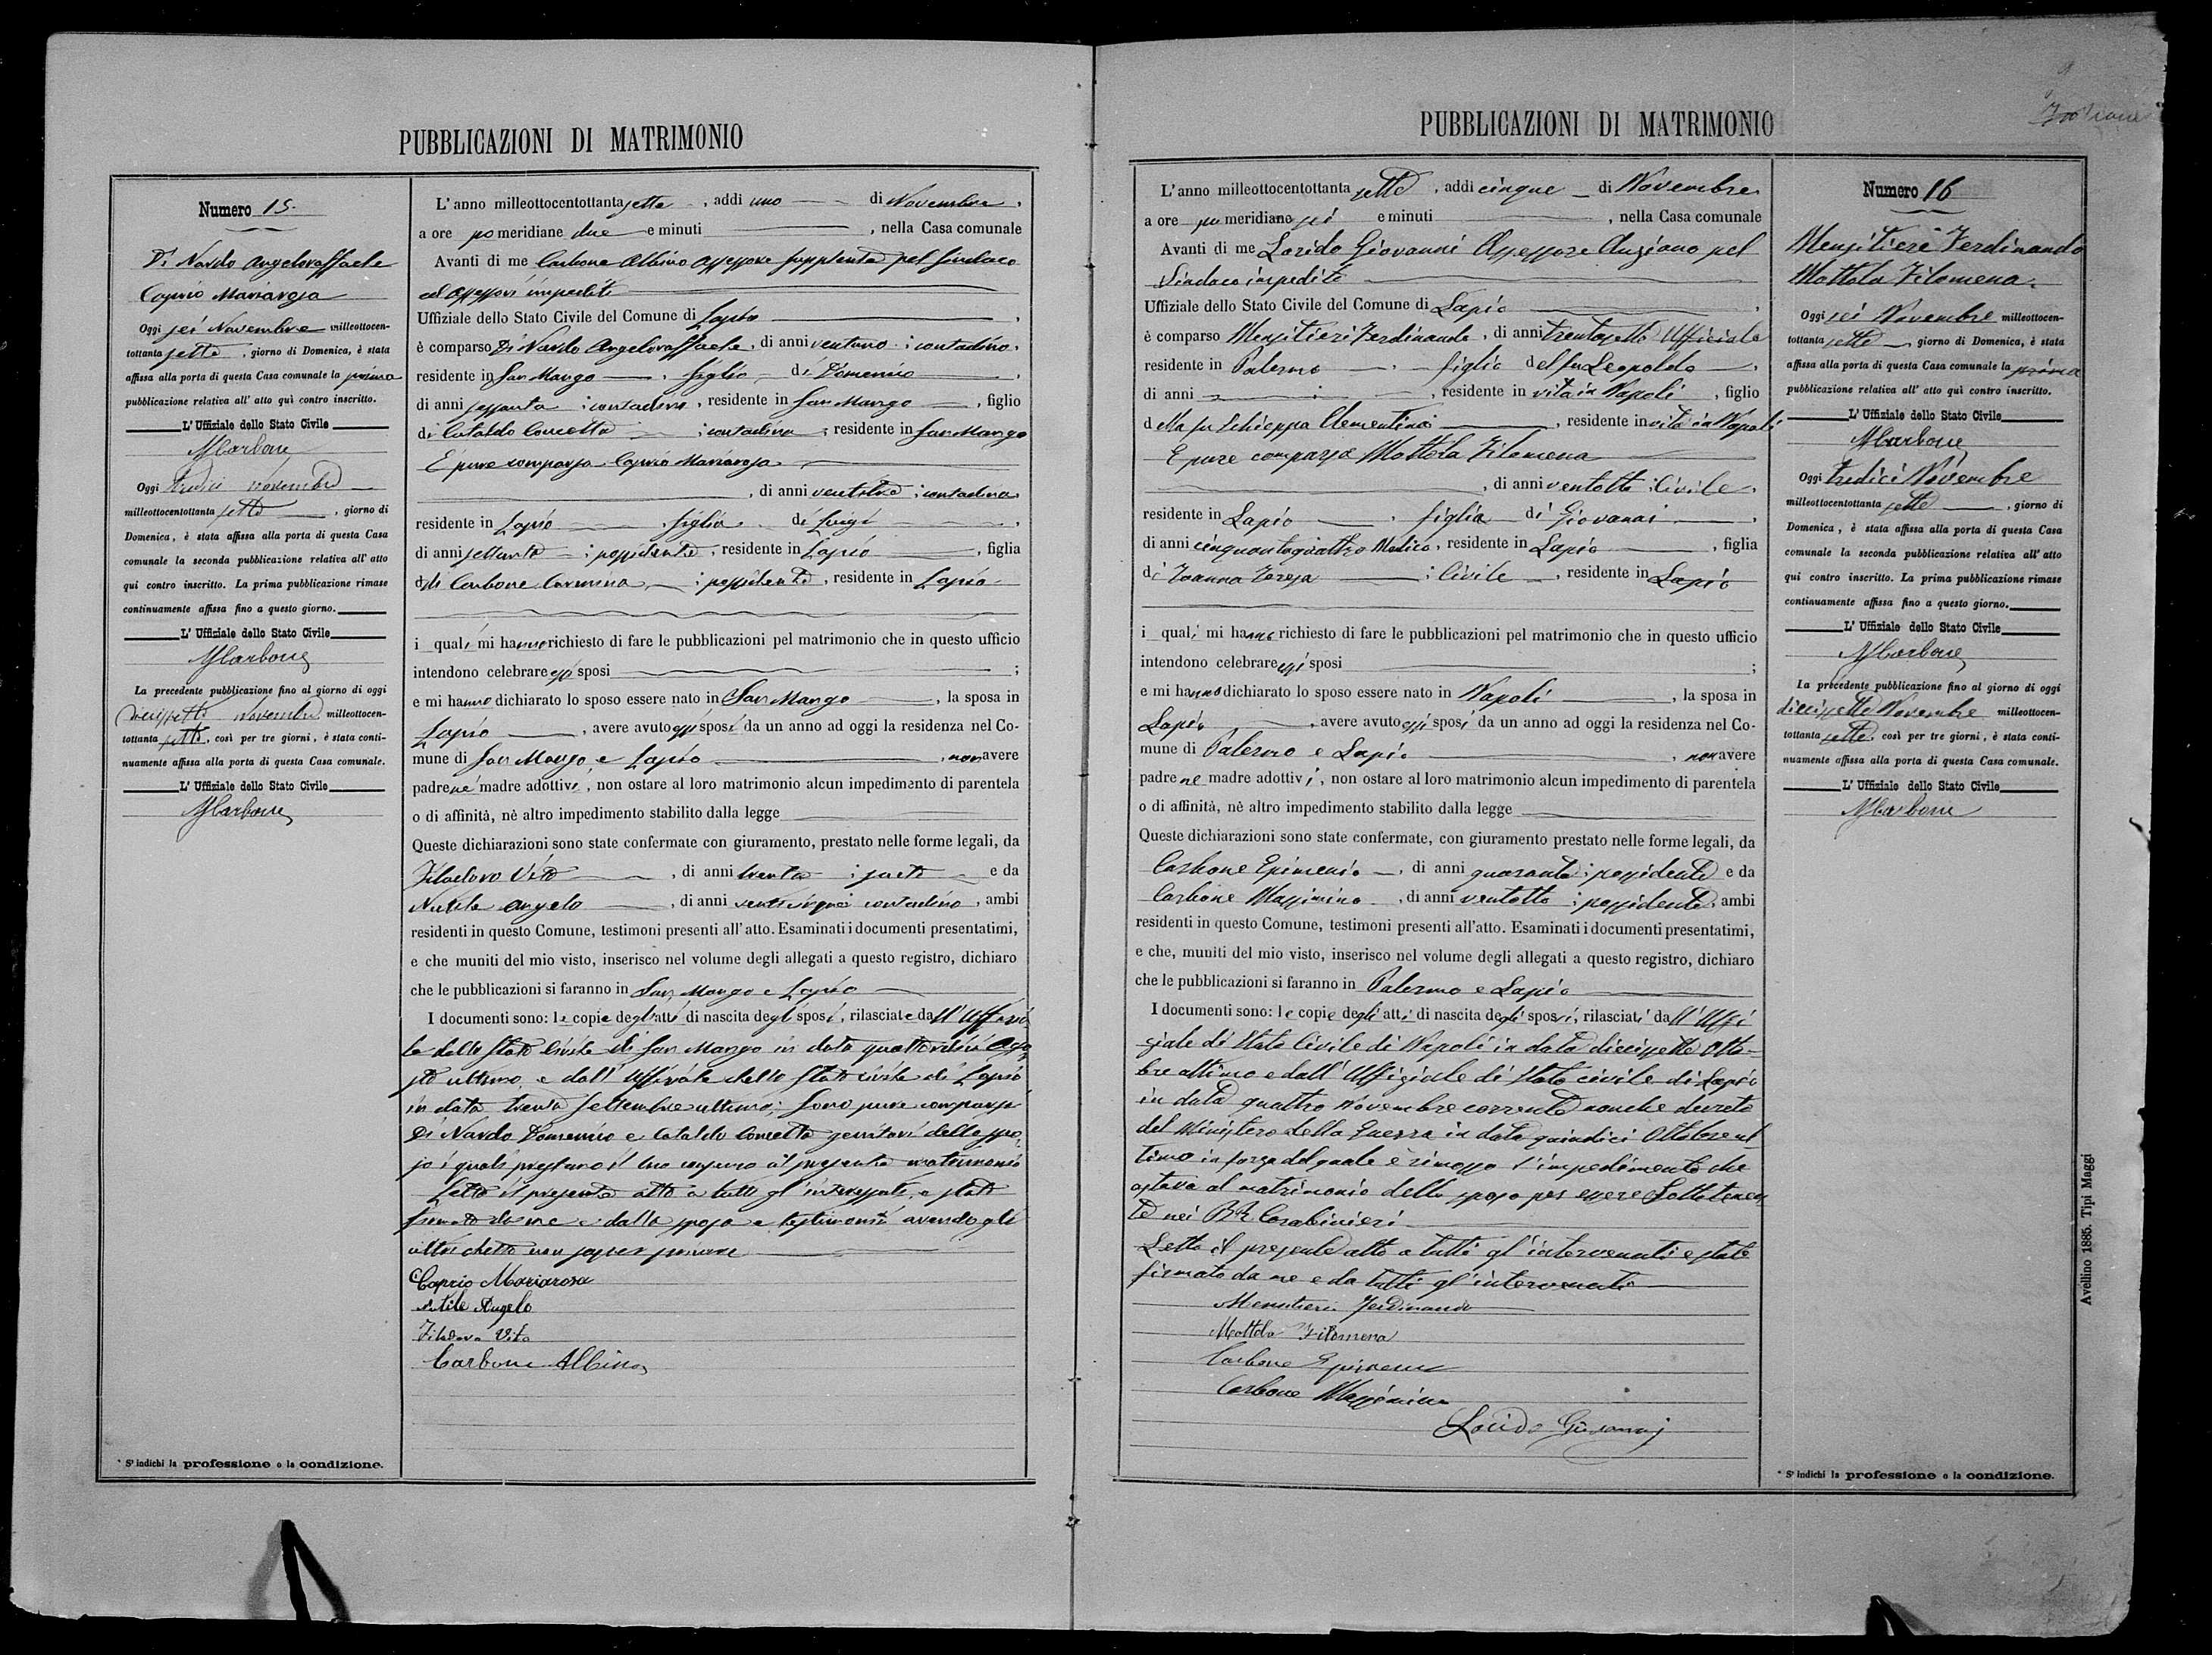 PUBBLICAZIONI DI MATRIMONIO
Numero 15.
Di Nardo Angeloraffaele
Caprio Mariarosa
Oggi sei Novembre milleottocen-
tottanta sette, giorno di Domenica, è stata
affissa alla porta di questa Casa comunale la prima
pubblicazione relativa all' atto quì contro inscritto.
L' Uffiziale dello Stato Civile
ACarbone
Oggi tredici novembre
milleottocentottanta sette, giorno di
Domenica, è stata affissa alla porta di questa Casa
comunale la seconda pubblicazione relativa all' atto
qui contro inscritto. La prima pubblicazione rimase
continuamente affissa fino a questo giorno.
L' Uffiziale dello Stato Civile
ACarbone
La precedente pubblicazione fino al giorno di oggi
diecissette novembre milleottocen-
tottanta sette, così per tre giorni, è stata conti-
nuamente affissa alla porta di questa Casa comunale.
L' Uffiziale dello Stato Civile
ACarbone
* S' indichi la professione o la condizione.
L' anno milleottocentottanta sette, addi uno di Novembre,
a ore pomeridiane due e minuti , nella Casa comunale
Avanti di me Carbone Albino Assessore supplente pel Sindaco
ed Assessori impediti
Uffiziale dello Stato Civile del Comune di Lapio,
è comparso Di Nardo Angeloraffaele, di anni ventuno; contadino,
residente in San Mango, figlio di Domenico,
di anni sessanta; contadino, residente in San Mango, figlio
di Cataldo Concetta; contadina, residente in San Mango
È pure comparsa Caprio Mariarosa
, di anni ; contadina
residente in Lapio, figlia di Luigi,
di anni settanta; possidente, residente in Lapio, figlia
di Carbone Carmina; possidente, residente in Lapio
i quali mi hanno richiesto di fare le pubblicazioni pel matrimonio che in questo ufficio
intendono celebrare essi sposi ;
e mi hanno dichiarato lo sposo essere nato in San Mango, la sposa in
Lapio, avere avuto essi sposi da un anno ad oggi la residenza nel Co-
mune di San Mango e Lapio, non avere
padre nè madre adottivi, non ostare al loro matrimonio alcun impedimento di parentela
o di affinità, nè altro impedimento stabilito dalla legge
Queste dichiarazioni sono state confermate con giuramento, prestato nelle forme legali, da
Filadoro Vito, di anni trenta; sarto e da
Nutile Angelo, di anni venticinque contadino, ambi
residenti in questo Comune, testimoni presenti all' atto. Esaminati i documenti presentatimi,
e che muniti del mio visto, inserisco nel volume degli allegati a questo registro, dichiaro
che le pubblicazioni si faranno in San Mango e Lapio
I documenti sono: le copie degli atti di nascita degli sposi, rilasciate dall' Uffizia
le dello Stato Civile di San Mango in data quattordici Ago
sto ultimo e dall' Uffiziale dello Stato civile di Lapio
in data trenta Settembre ultimo; sono pure comparsi
Di Nardo Domenico e Cataldo Concetta genitori dello spo
so i quali prestano il loro consenso al presente matrimonio
Letto il presente atto a tutti gl' interessati, è stato
firmato da me e dalla sposa e testimonii avendo gli
altri detto non saper firmare
Caprio Mariarosa
Nutile Angelo
Filadoro Vito
Carbone Albino
PUBBLICAZIONI DI MATRIMONIO
L' anno milleottocentottanta sette, addi cinque di Novembre
a ore pomeridiane sei e minuti , nella Casa comunale
Avanti di me Lorido Giovanni Assessore Anziano pel
Sindaco impedito
Uffiziale dello Stato Civile del Comune di Lapio,
è comparso Mensitieri Ferdinando, di anni trentasette Ufficiale
residente in Palermo, figlio del fu Leopoldo,
di anni , residente in vita in Napoli, figlio
della fu Schieppa Clementina, residente in vita in Napoli
È pure comparsa Mottola Filomena
, di anni ventotto; Civile,
residente in Lapio, figlia di Giovanni,
di anni cinquantaquattro Medico, residente in Lapio, figlia
di Ioanna Teresa; Civile, residente in Lapio
i quali mi hanno richiesto di fare le pubblicazioni pel matrimonio che in questo ufficio
intendono celebrare essi sposi ;
e mi hanno dichiarato lo sposo essere nato in Napoli, la sposa in
Lapio, avere avuto essi sposi da un anno ad oggi la residenza nel Co-
mune di Palermo e Lapio, non avere
padre ne madre adottivi, non ostare al loro matrimonio alcun impedimento di parentela
o di affinità, nè altro impedimento stabilito dalla legge
Queste dichiarazioni sono state confermate, con giuramento prestato nelle forme legali, da
Carbone Epimenio, di anni quaranta; possidente e da
Carbone Massimino, di anni ventotto; possidente, ambi
residenti in questo Comune, testimoni presenti all'atto. Esaminati i documenti presentatimi,
e che, muniti del mio visto, inserisco nel volume degli allegati a questo registro, dichiaro
che le pubblicazioni si faranno in Palermo e Lapio
I documenti sono: le copie degli atti di nascita degli sposi, rilasciati dall' Uffi
ziale di Stato Civile di Napoli in data diecissette Otto-
bre ultimo e dall' Uffiziale di Stato civile di Lapio
in data quattro Novembre corrente nonchè decreto
del Ministero della Guerra in data quindici Ottobre ul
timo in forza del quale è rimosso l' impedimento che
ostava al matrimonio dello sposo per essere Sottotenen
te nei RR. Carabinieri
Letto il presente atto a tutti gl' intervenuti è stato
firmato da me e da tutti gl' intervenuti
Mensitieri Ferdinando
Mottola Filomena
Carbone Epimenio
Carbone Massimino
Lorido Giovanni
Numero 16
Mensitieri Ferdinando
Mottola Filomena.
Oggi sei Novembre milleottocen-
tottanta sette, giorno di Domenica, è stata
affissa alla porta di questa Casa comunale la prima
pubblicazione relativa all' atto quì contro inscritto.
L' Uffiziale dello Stato Civile
ACarbone
Oggi tredici Novembre
milleottocentottanta sette, giorno di
Domenica, è stata affissa alla porta di questa Casa
comunale la seconda pubblicazione relativa all' atto
qui contro inscritto. La prima pubblicazione rimase
continuamente affissa fino a questo giorno.
L' Uffiziale dello Stato Civile
ACarbone
La precedente pubblicazione fino al giorno di oggi
diecissette Novembre milleottocen-
tottanta sette, così per tre giorni, è stata conti-
nuamente affissa alla porta di questa Casa comunale.
L' Uffiziale dello Stato Civile
ACarbone
* S' indichi la professione o la condizione.
Avellino 1885. Tipi Maggi